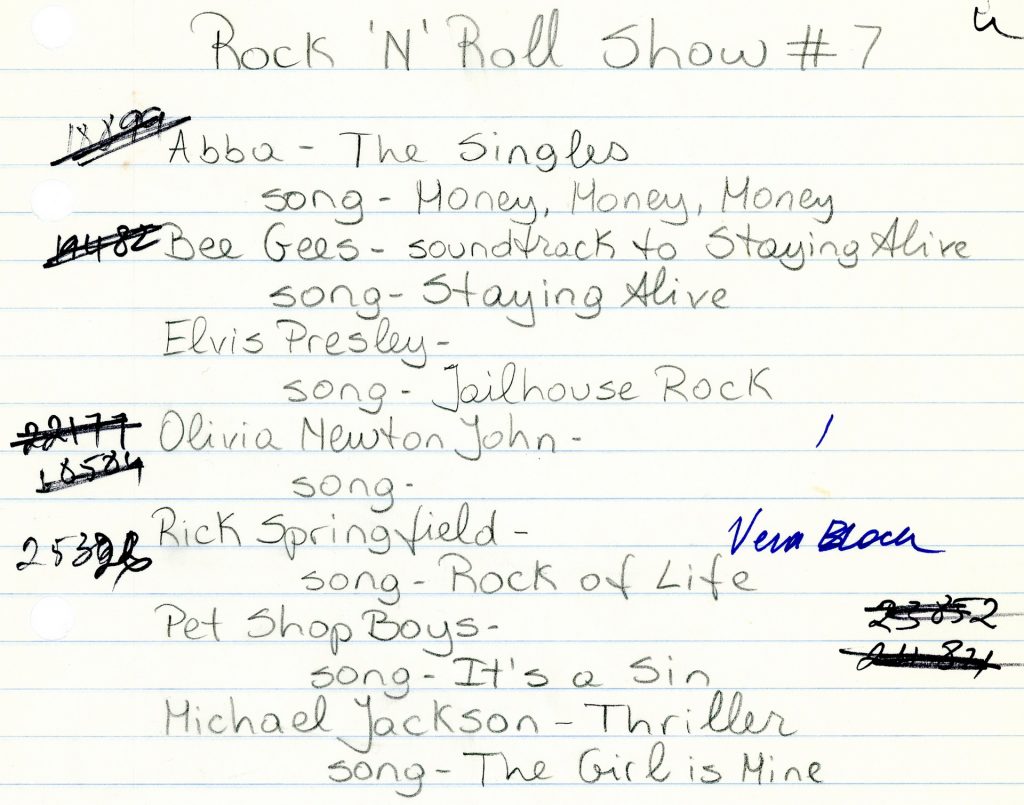 Rock 'N' Roll Show #7
18899 Abba - The Singles
song - Money, Money, Money
19482 Bee Gees - soundtrack to Staying Alive
song - Staying Alive
Elvis Presley -
song - Jailhouse Rock
22177 Olivia Newton John -
18584
song -
Rick Springfield -
Vera Block
song - Rock of Life
Pet Shop Boys -
23852
song - It's a Sin
Michael Jackson - Thriller
song - The Girl is Mine